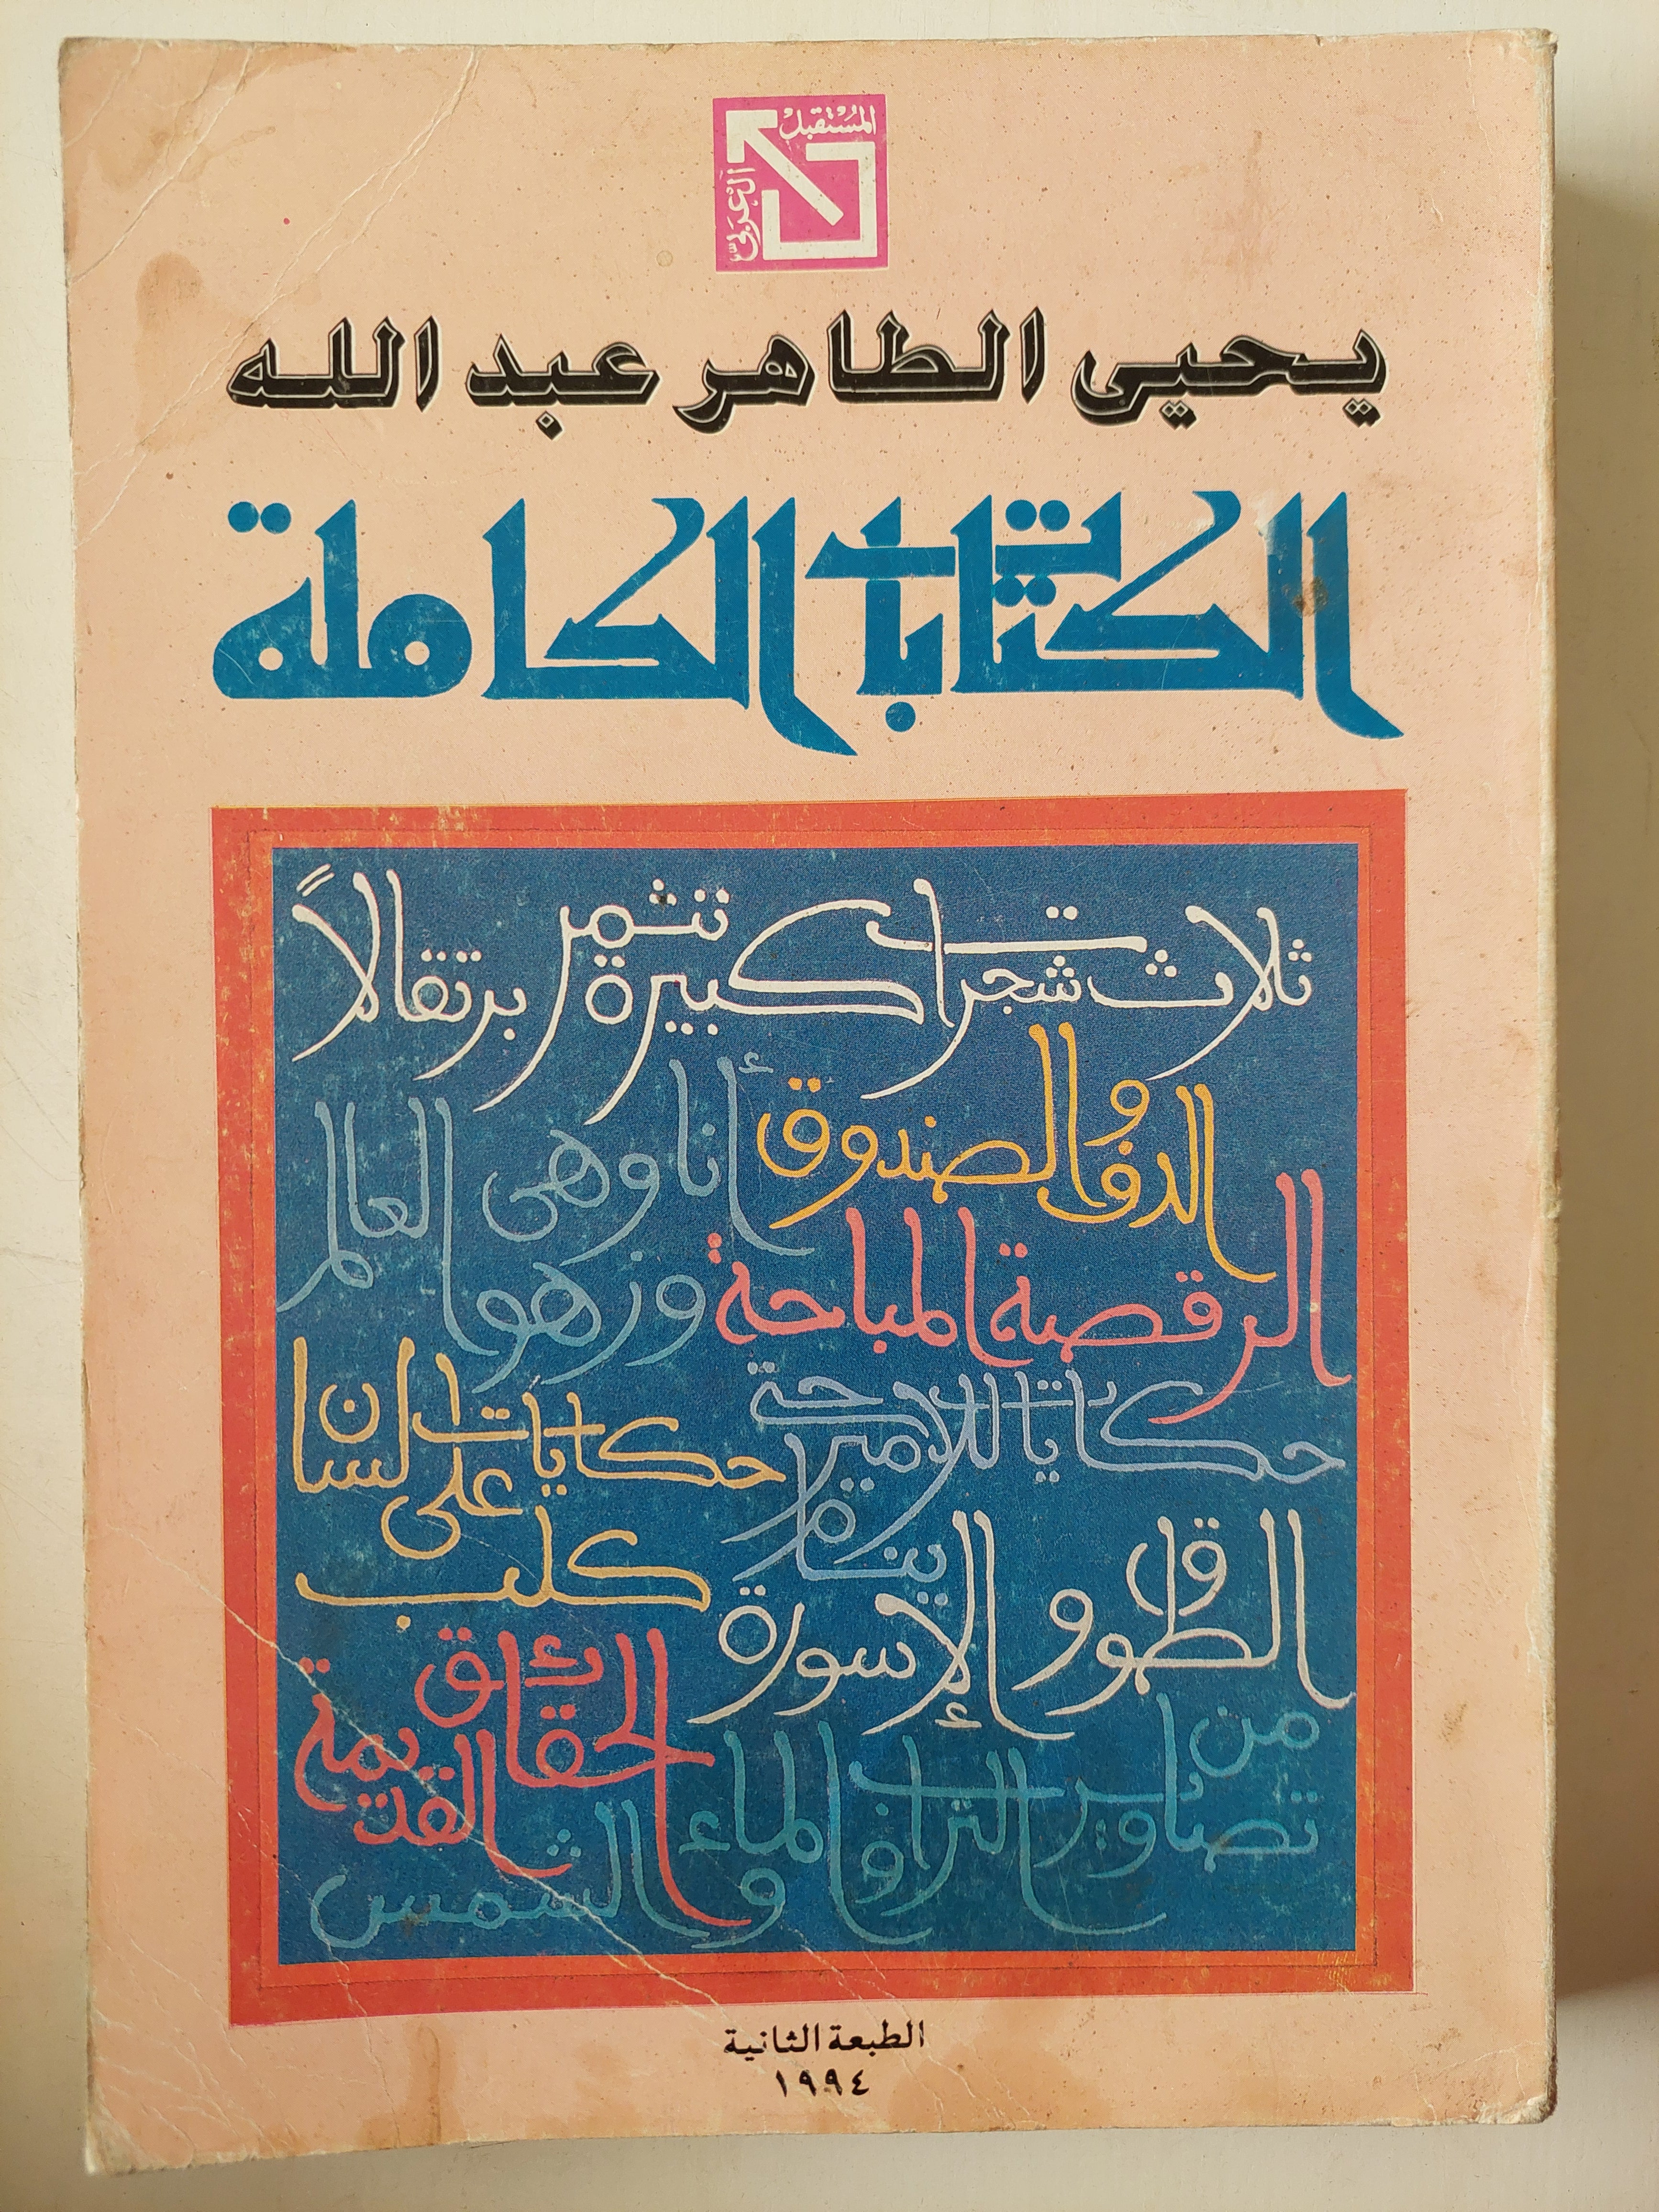 المُسْتقبلْ
العَربيّ
يحيى الطاهر عبد الله
الكتابات الكاملة
ثلاث شجرات كبيرة تثمر برتقالاً
الدف والصندوق
أنا وهى
وزهور العالم
الرقصة المباحة
حكايات للأمير حتى ينام
حكايات على لسان كلب
الطوق والإسورة
الحقائق القديمة
من تصاوير التراب والماء والشمس
الطبعة الثانية
١٩٩٤